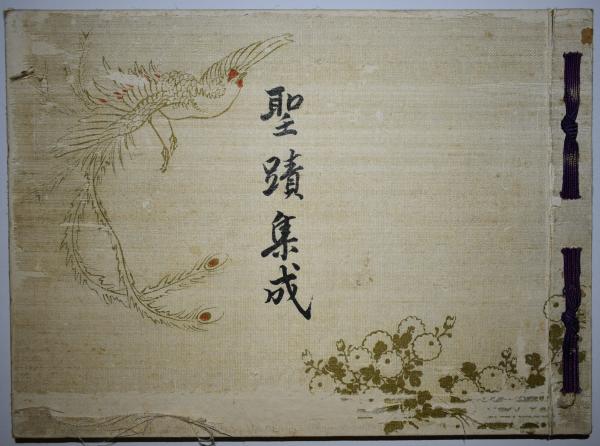 聖蹟集成